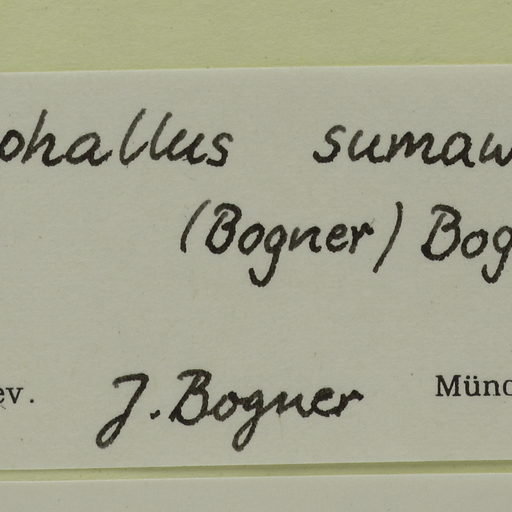 ohallus sumaw
(Bogner) Bog
ev. J. Bogner Münc